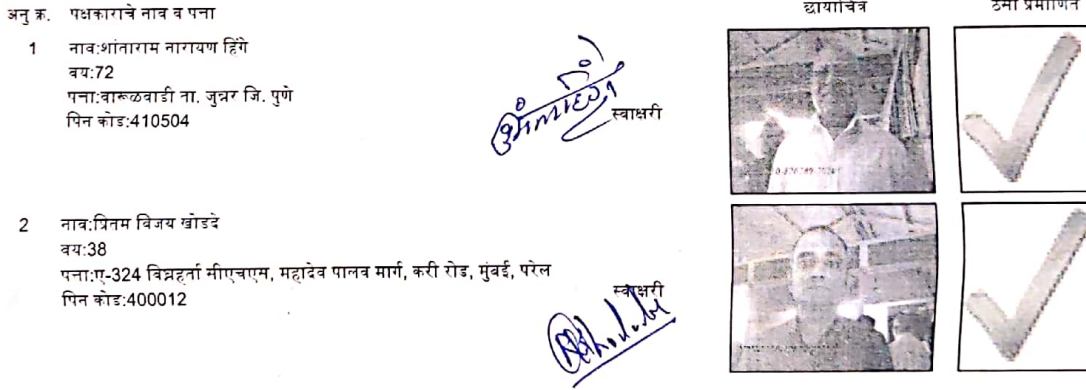 अनु क्र. पक्षकाराचे नाव व पत्ता छायाचित्र ठसा प्रमाणित
1 नाव:शांताराम नारायण हिंगे
वय:72
पत्ता:वारूळवाडी ता. जुन्नर जि. पुणे
पिन कोड:410504
स्वाक्षरी
2 नाव:प्रितम विजय खोडदे
वय:38
पत्ता:ए-324 विघ्नहर्ता सीएचएस, महादेव पालव मार्ग, करी रोड, मुंबई, परेल
पिन कोड:400012
स्वाक्षरी